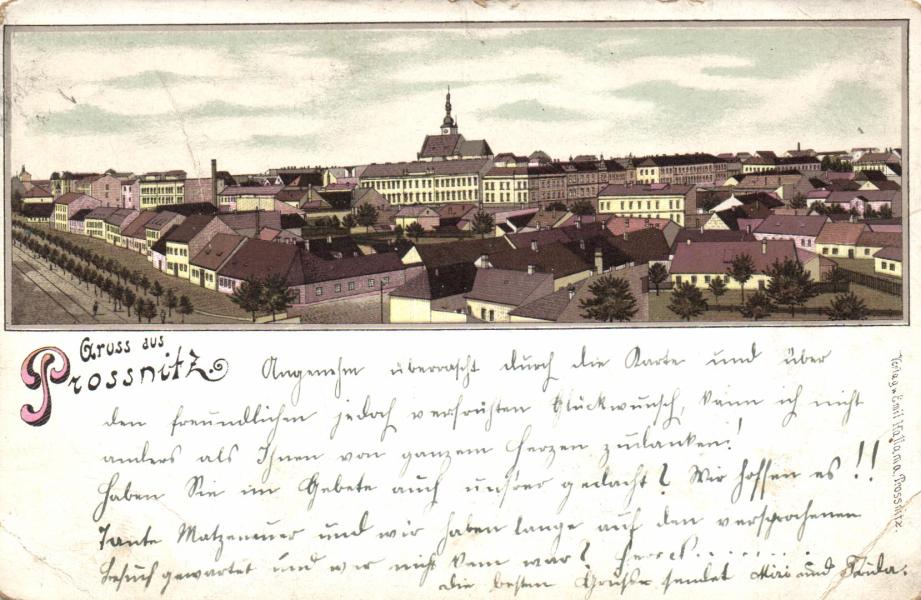 Gruss aus
Prossnitz.
Angenehm überrascht durch die Karte und über
den freundlichen jedoch verfrühten Glückwunsch, kann ich nicht
anders als Ihnen von ganzem Herzen zu danken!
Haben Sie im Gebete auch unsrer gedacht? Wir hoffen es!!
Tante Matzenauer und wir haben lange auf den versprochenen
Besuch gewartet und wer nicht kam war?
die besten Grüße sendet Miri und
Verlag v. Emil Prossnitz.